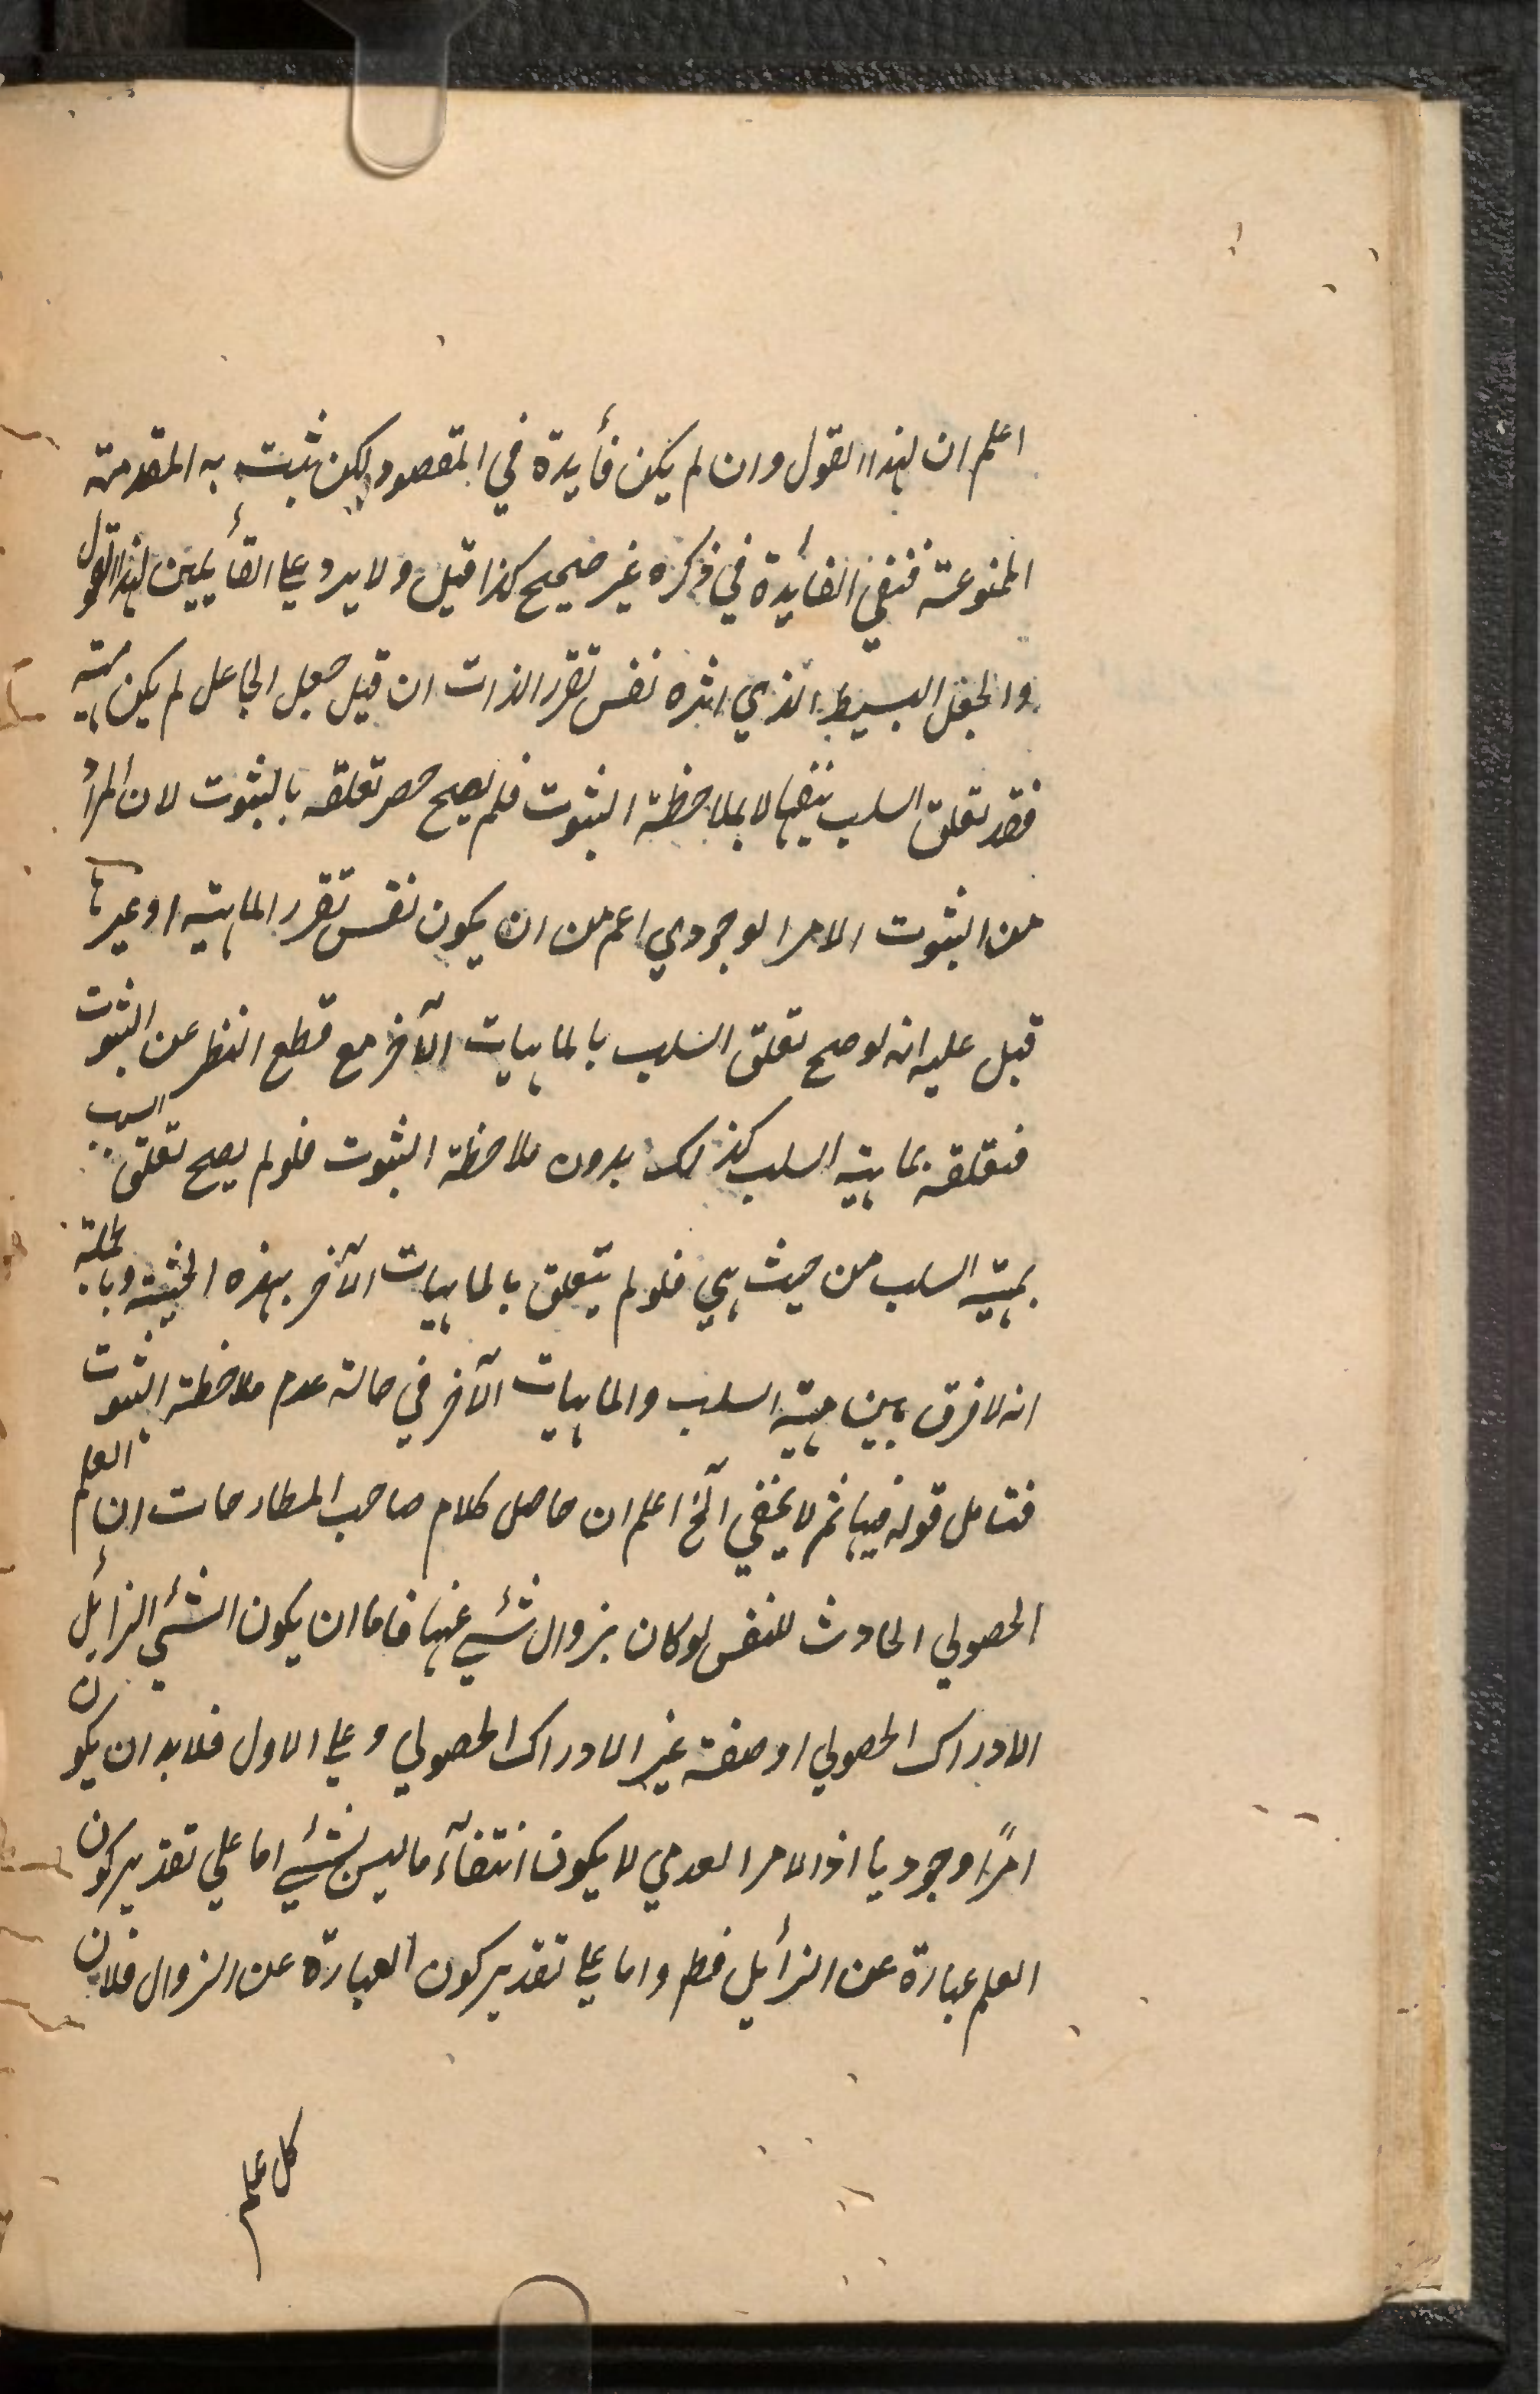 اعلم ان لهذا القول وان لم يكن فأيدة في المقصود لكن ثبت به المقدمة
الممنوعة فنفي الفأيدة في ذكره غير صحيح كذا قيل ولا يرد علي القأيلين لهذا القول
والجعل البسيط الذي اثره نفس تقرر الذات ان قيل جعل الجاعل لم يكن مهية
فقد تعلق السلب بنفيها لا بملاحظة الثبوت فلم يصح حصر تعلقه بالثبوت لان المراد
من الثبوت الامر الوجودي اعم من ان يكون نفس تقرر الماهية او غيرها
قيل عليه انه لو صح تعلق السلب بالماهيات الآخر مع قطع النظر عن الثبوت
فتعلقه بماهية السلب كذلك بدون ملاحظة الثبوت فلو لم يصح تعلق السلب
بمهية السلب من حيث هي فلو لم يتعلق بالماهيات الآخر بهذه الحيثية وبالجملة
انه لا فرق بين مهية السلب والماهيات الآخر في حالة عدم ملاحظة الثبوت
فتامل قوله فيها ثم لا يخفي آلخ اعلم ان حاصل كلام صاحب المطارحات ان العلم
الحصولي الحادث للنفس لو كان بزوال شئي عنها فاما ان يكون الشئي الزأيل
الادراك الحصولي او صفة غير الادراك الحصولي وعلي الاول فلا بد ان يكون
امرًا وجوديا اذ الامر العدمي لا يكون انتفآء ما ليس بشئي اما علي تقدير كون
العلم عبارة عن الزأيل فظ واما علي تقدير كون العبارة عن الزوال فلان
كل علم